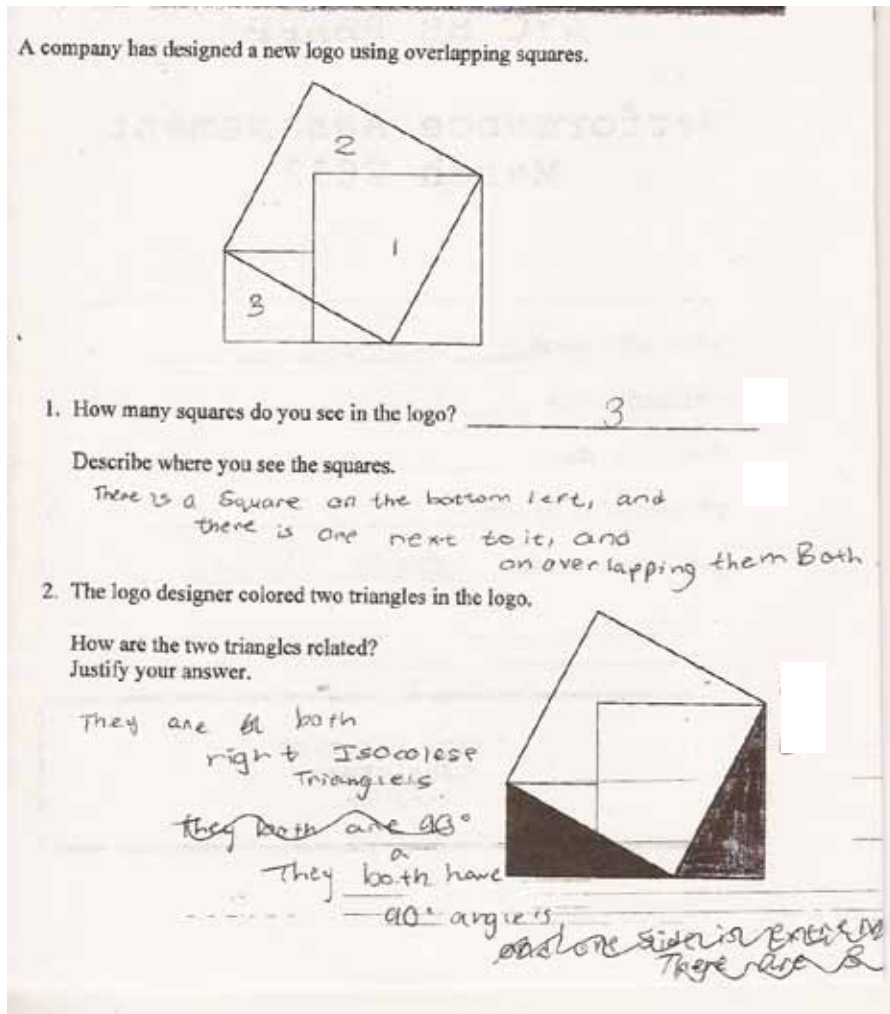 A company has designed a new logo using overlapping squares.
2
1
3
1. How many squares do you see in the logo? 3
Describe where you see the squares.
There is a Square on the bottom left, and
there is one next to it, and
on overlapping them Both
2. The logo designer colored two triangles in the logo.
How are the two triangles related?
Justify your answer.
They are both
right Isocolese
Triangleis
They both are 90°
a
They both have
90° angleis
one side is
There are